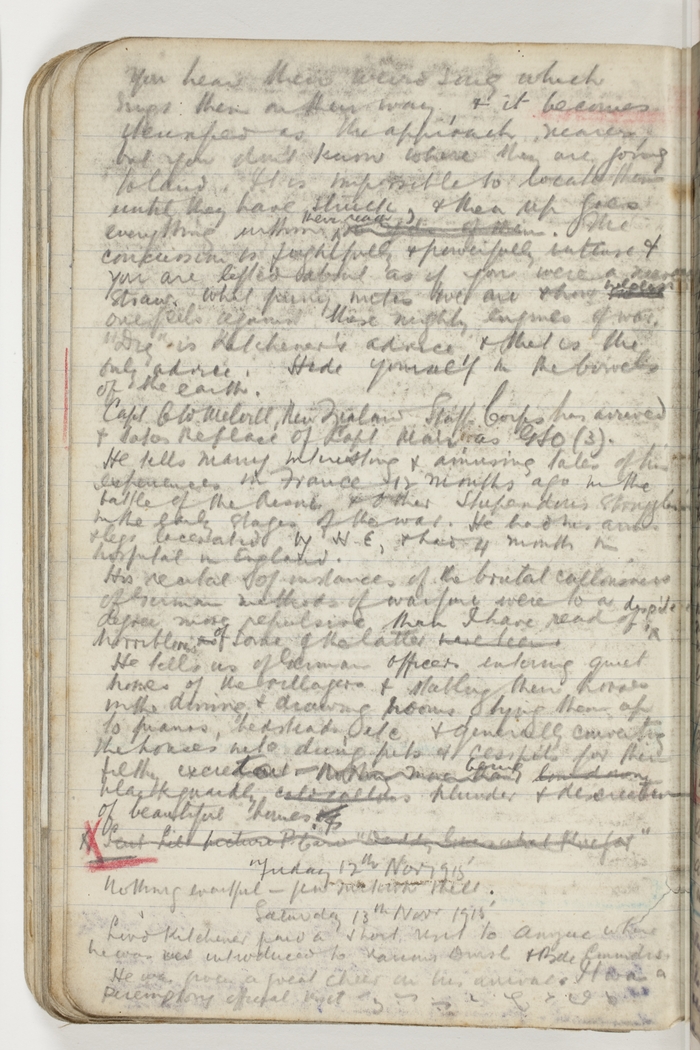 You hear their weird song which
sings them on their way & it becomes
as the approach nears
but you don't know where they are going
to land. It is impossible to locate them
until they have struck, & then up goes
everything within their reach. The
concussion is frightfully & powerfully intense &
you are lifted about as if you were a mere
straw. What puny mites we are & how
one feels against these mighty engines of war.
"Dig" is Kitchener's advice & that is the
only advice. Hide yourself in the bowels
of the earth.
Capt C W Melvill, New Zealand Staff Corps has arrived
& takes the place of Capt as GSO (3).
He tells many interesting & amusing tales of his
experiences in France 12 months ago in the
battle of the Aisne & other stupendous struggles
in the early stages of the war. He had his arms
& legs lacerated by H.E, & had 4 month in
hospital in England.
His recital of instances of the brutal callousness
of German methods of warfare were to a
degree more repulsive than I have read of,
horrible as some of the latter have been.
He tells us of German officers entering quiet
homes of the villagers & stabling their horses
in the dining & drawing rooms tying them up
to pianos, bedsteads etc, & generally converting
the houses into dung pits & cesspits for their
filthy
blackguardly callous plunder & desecration
of beautiful homes.
Sent picture P. Card "Daddy
Friday 12th Nov 1915
Nothing eventful –
Saturday 13th Novr 1915
Lord Kitchener paid a short visit to Anzac where
he was introduced to various Divisl & Bde Commdrs.
He was given a great cheer on his arrival. It was a
peremptory official visit